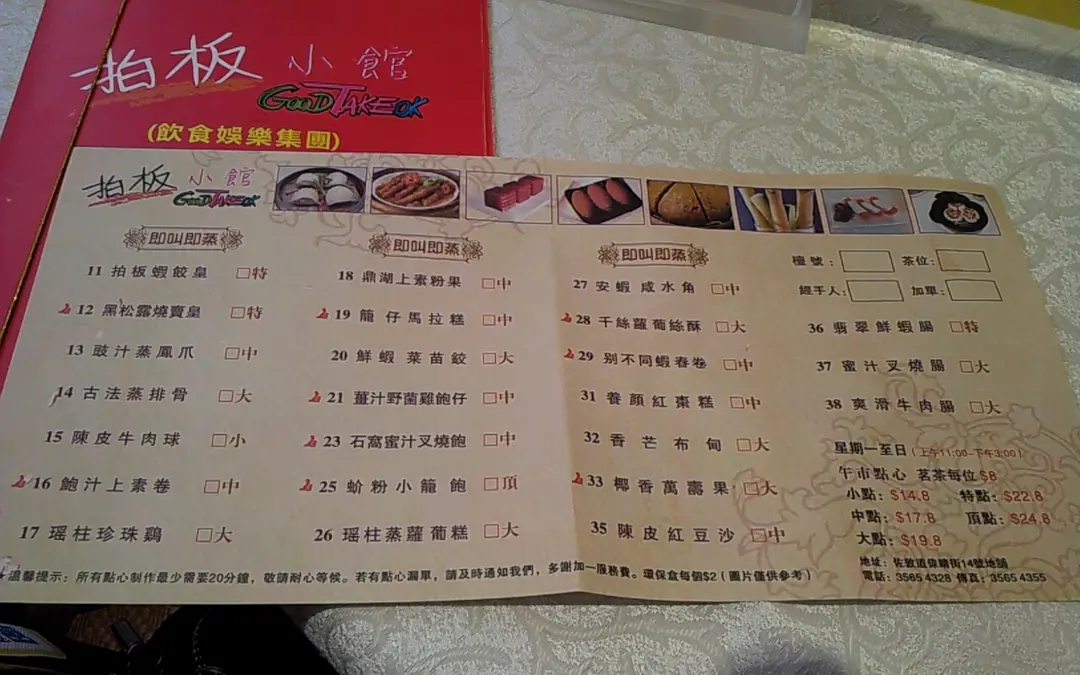 拍板 小館
GOOD TAKE OK
(飲食娛樂集團)
拍板 小館
GOOD TAKE OK
即叫即蒸
11 拍板蝦餃皇 □特
12 黑松露燒賣皇 □特
13 豉汁蒸鳳爪 □中
14 古法蒸排骨 □大
15 陳皮牛肉球 □小
16 鮑汁上素卷 □中
17 瑶柱珍珠鷄 □大
即叫即蒸
18 鼎湖上素粉果 □中
19 籠仔馬拉糕 □中
20 鮮蝦菜苗餃 □大
21 薑汁野菌雞飽仔 □中
23 石窩蜜汁叉燒飽 □中
25 蚧粉小籠飽 □頂
26 瑶柱蒸蘿蔔糕 □大
即叫即蒸
27 安蝦咸水角 □中
28 千絲蘿蔔絲酥 □大
29 別不同蝦春卷 □中
31 養顏紅棗糕 □中
32 香芒布甸 □大
33 椰香萬壽果 □大
35 陳皮紅豆沙 □中
檯號: 茶位:
經手人: 加單:
36 翡翠鮮蝦腸 □特
37 蜜汁叉燒腸 □大
38 爽滑牛肉腸 □大
星期一至日(上午11:00-下午3:00)
午市點心 茗茶每位$8
小點: $14.8 特點: $22.8
中點: $17.8 頂點: $24.8
大點: $19.8
地址: 佐敦道偉晴街14號地舖
電話: 3565 4328 傳真: 3565 4355
★溫馨提示: 所有點心制作最少需要20分鐘，敬請耐心等候。若有點心漏單，請及時通知我們，多謝加一服務費。環保盒每個$2 (圖片僅供參考)